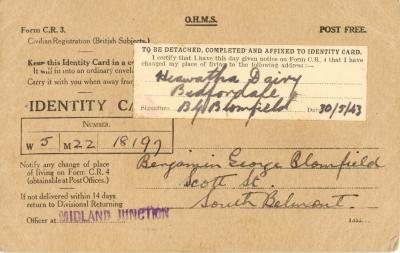 O.H.M.S.
Form C.R. 3.
POST FREE.
Civilian Registration (British Subjects.)
Keep this Identity Card in a
It will go into an ordinary envel
Carry it with you when away from
TO BE DETACHED, COMPLETED AND AFFIXED TO IDENTITY CARD.
I certify that I have this day given notice on Form C.R. 4 that I have
changed my place of living to the following address :—
Hiawatha Dairy
Bedfordale
Signature B G Blomfield Date 30/5/43
IDENTITY CA
NUMBER.
W 5 M 22 18197
Notify any change of place
of living on Form C.R. 4
(obtainable at Post Offices.)
If not delivered within 14 days
return to Divisional Returning
Officer at MIDLAND JUNCTION
Benjamin George Blomfield
Scott St.
South Belmont.